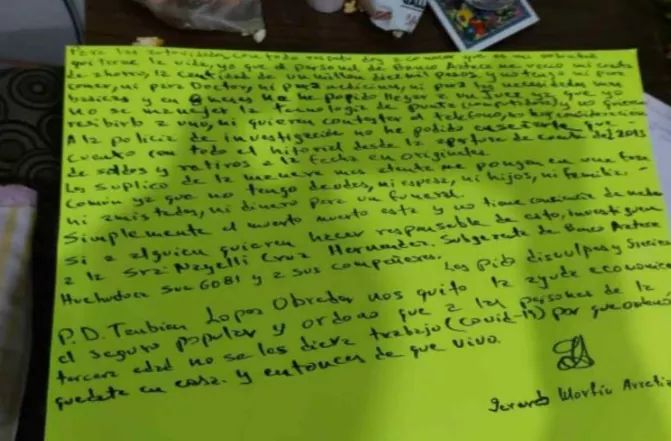 Para las autoridades con todo respeto doy a conocer que es mi voluntad
quitarme la vida, ya que el personal de Banco Azteca me vacio mi cuenta
de ahorro, la cantidad de un millon diez mil pesos y no tengo ni para
comer, ni para Doctor, ni para medicinas, ni para las necesidades mas
basicas y en meses no he podido llegar a una ya que yo
no se manejar la tecnologia de punta (computadoras) y no quieren
recibirlo a uno, ni quieren contestar el telefono, no hay consideracion
A la policia de investigación no he podido
cuento con todo el historial desde la apertura de cuenta del 2013
de saldos y retiros a la fecha en originales.
Les suplico de la manera mas atenta me pongan en una fosa
comun ya que no tengo deudos, ni esposa, ni hijos, ni familia
ni amistades, ni dinero para un funeral.
Simplemente el muerto muerto esta y no tiene
Si a alguien quieren hacer responsable de esto, investiguen
a la Srta: Nayelli Cruz Hernandez. Subgerente de Banco Azteca
Huehuetoca Suc 6081 y a sus compañeros.
Les pido disculpas y
P.D. Tambien Lopez Obrador nos quito la ayuda economica
el seguro popular y ordeno que a las personas de la
tercera edad no se les diera trabajo (covid-19) por que
quedate en casa. y entonces de que vivo.
Gerardo Martin